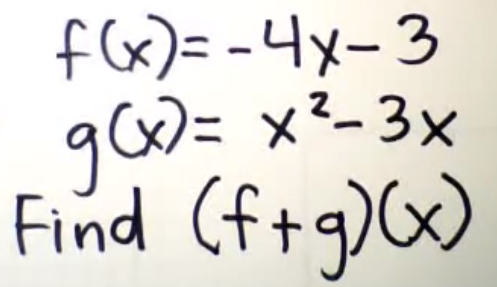 f(x)= -4x-3
g(x)= x²-3x
Find (f+g)(x)